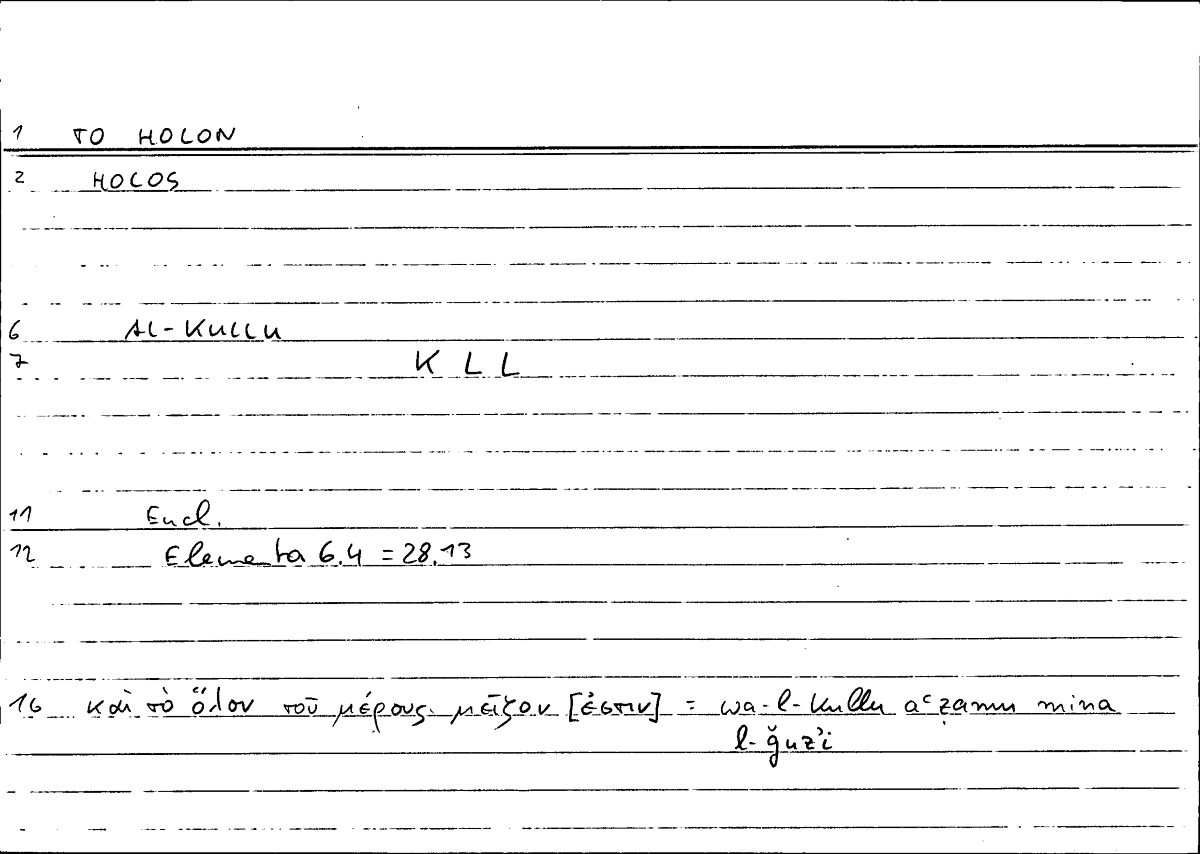 1 TO HOLON
2 HOLOS
6 AL-KULLU
7 K L L
11 Eucl.
12 Elementa 6.4 = 28.13
16 καὶ τὸ ὅλον τοῦ μέρους μεῖζον [ἐστιν] = wa-l-kullu aʿẓamu mina
l-ǧuzʾi